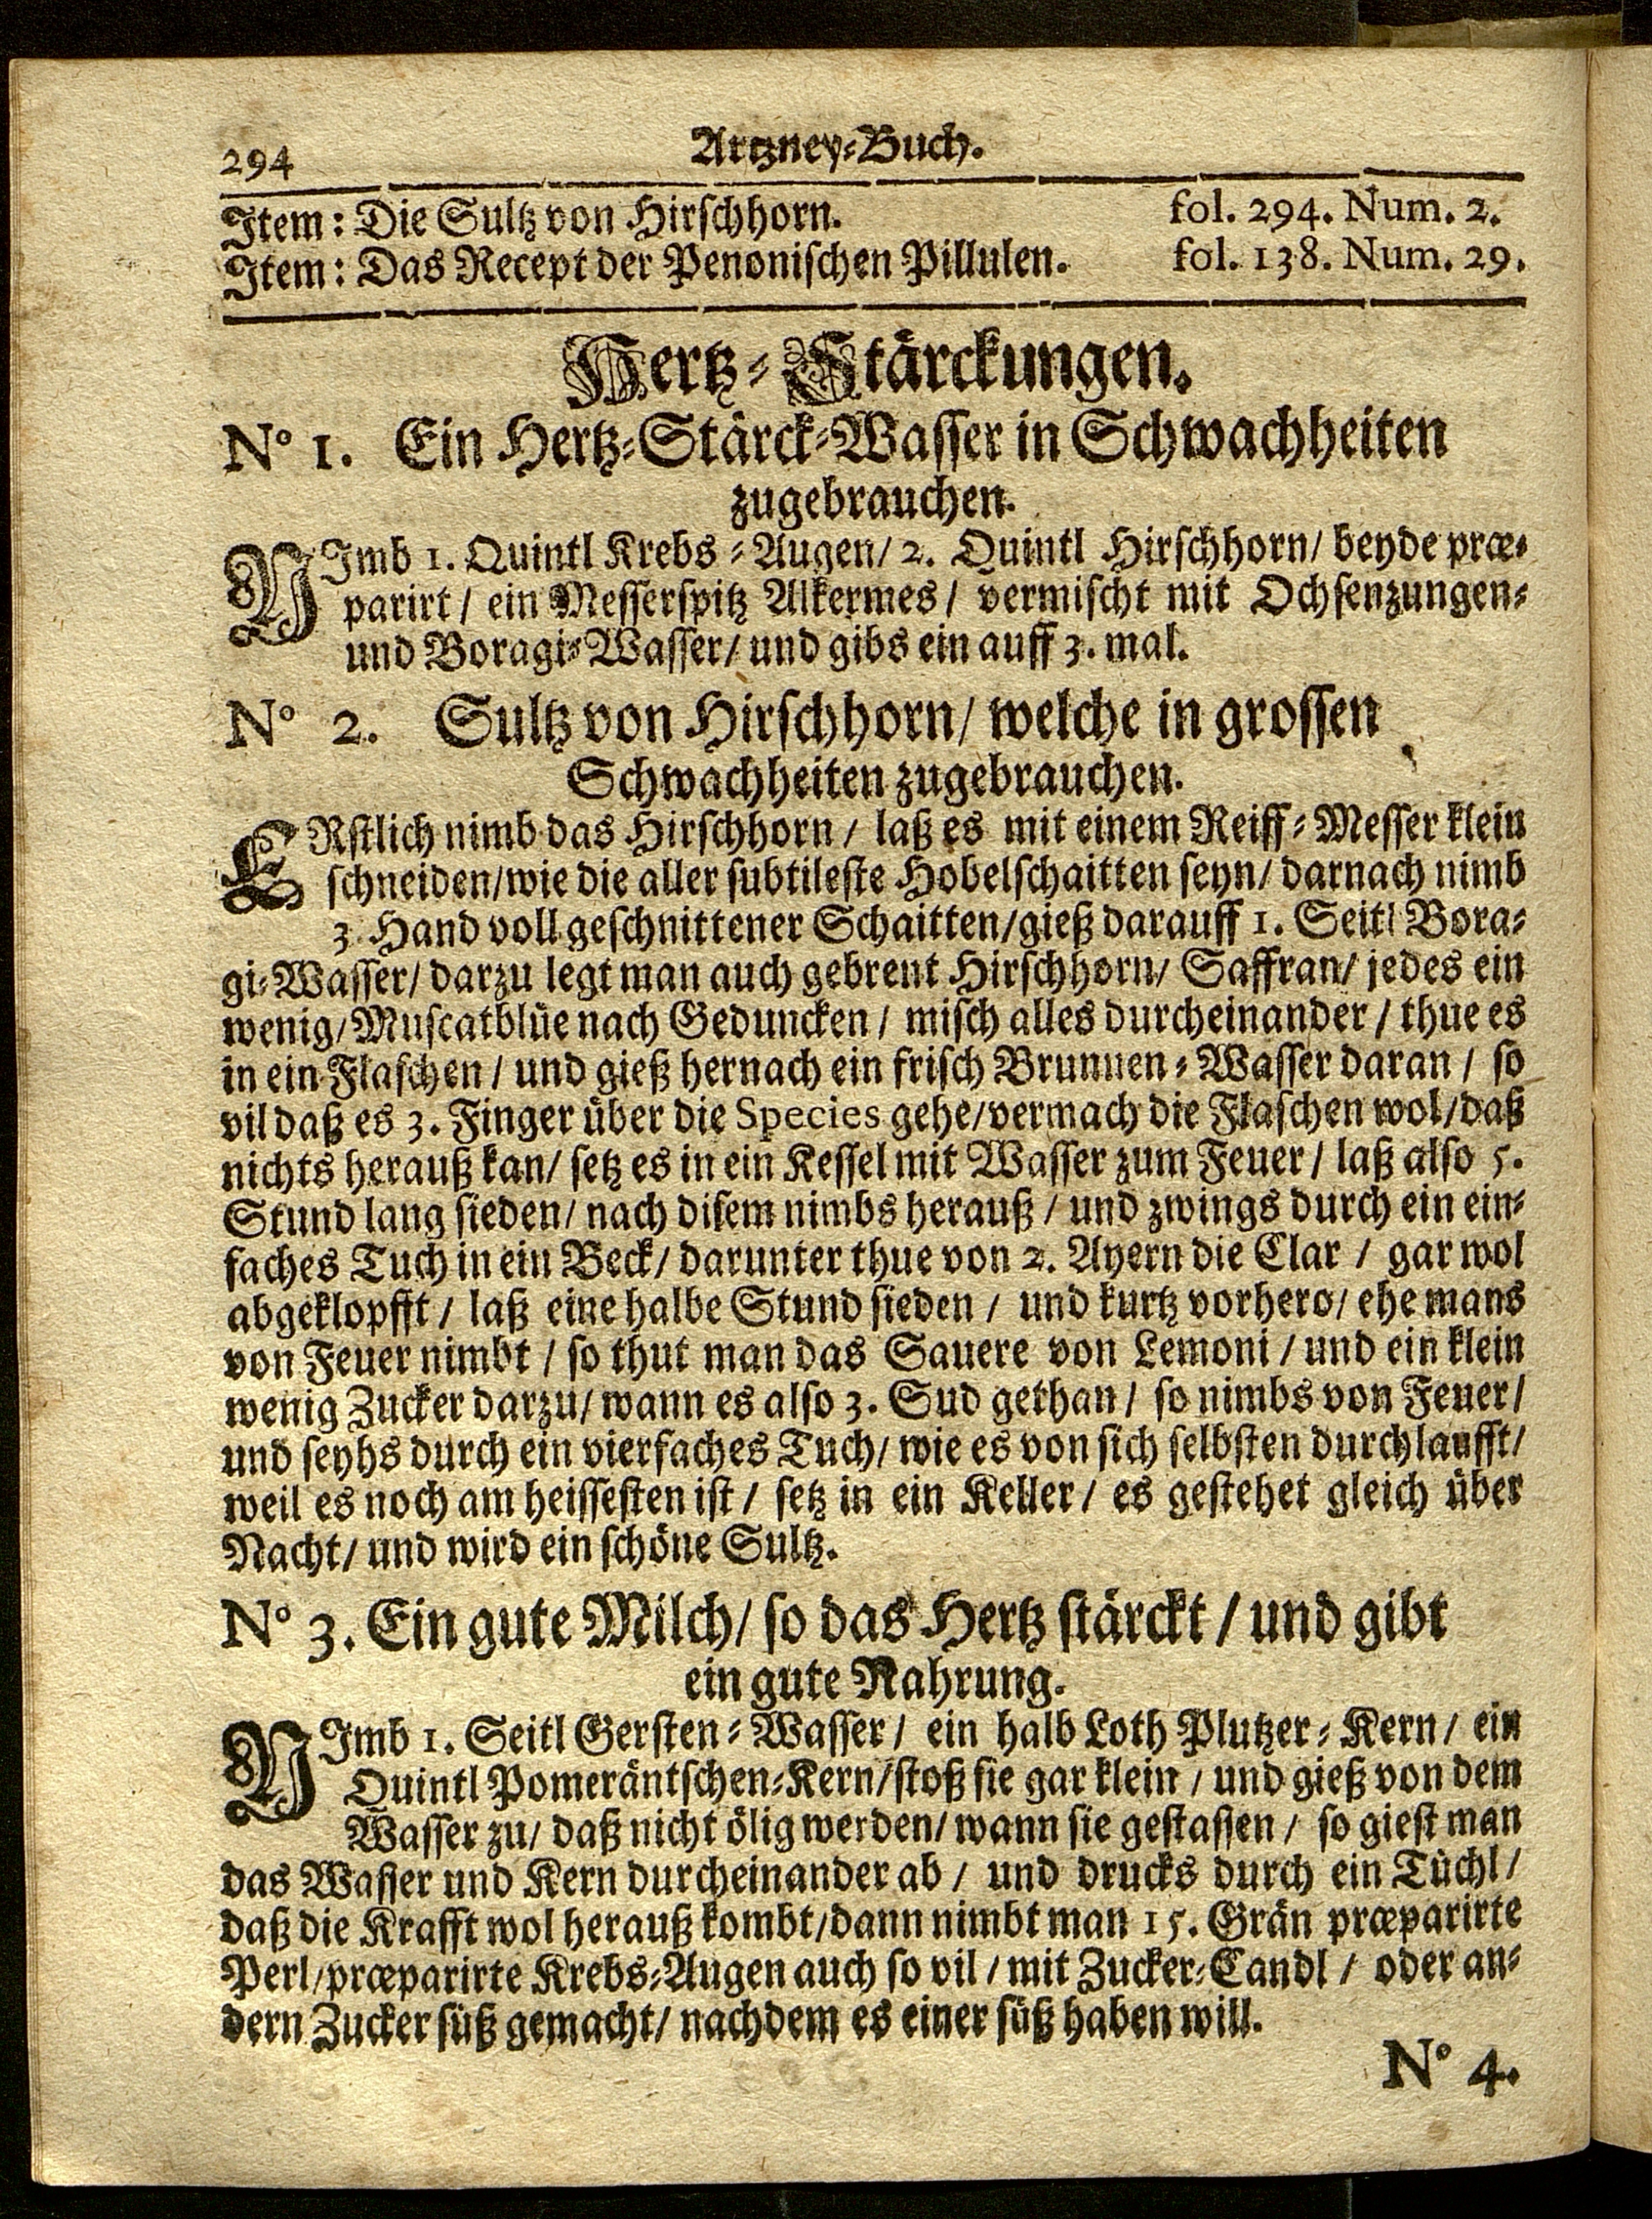 294 Artzney-Buch.
Item: Die Sultz von Hirschhorn. fol. 294. Num. 2.
Item: Das Recept der Penonischen Pillulen. fol. 138. Num. 29.
Hertz-Stärckungen.
N° 1. Ein Hertz-Stärck-Wasser in Schwachheiten
zugebrauchen.
NImb 1. Quintl Krebs-Augen/ 2. Quintl Hirschhorn/ beyde præ-
parirt/ ein Messerspitz Alkermes/ vermischt mit Ochsenzungen-
und Boragi-Wasser/ und gibs ein auff 3. mal.
N° 2. Sultz von Hirschhorn/ welche in grossen
Schwachheiten zugebrauchen.
ERstlich nimb das Hirschhorn/ laß es mit einem Reiff-Messer klein
schneiden/ wie die aller subtileste Hobelschaitten seyn/ darnach nimb
3. Hand voll geschnittener Schaitten/ gieß darauff 1. Seitl Bora-
gi-Wasser/ darzu legt man auch gebrent Hirschhorn/ Saffran/ jedes ein
wenig/ Muscatblüe nach Geduncken/ misch alles durcheinander/ thue es
in ein Flaschen/ und gieß hernach ein frisch Brunnen-Wasser daran/ so
vil daß es 3. Finger über die Species gehe/ vermach die Flaschen wol/ daß
nichts herauß kan/ setz es in ein Kessel mit Wasser zum Feuer/ laß also 5.
Stund lang sieden/ nach disem nimbs herauß/ und zwings durch ein ein-
faches Tuch in ein Beck/ darunter thue von 2. Ayern die Clar/ gar wol
abgeklopfft/ laß eine halbe Stund sieden/ und kurtz vorhero/ ehe mans
von Feuer nimbt/ so thut man das Sauere von Lemoni/ und ein klein
wenig Zucker darzu/ wann es also 3. Sud gethan/ so nimbs von Feuer/
und seyhs durch ein vierfaches Tuch/ wie es von sich selbsten durchlaufft/
weil es noch am heissesten ist/ setz in ein Keller/ es gestehet gleich über
Nacht/ und wird ein schöne Sultz.
N° 3. Ein gute Milch/ so das Hertz stärckt/ und gibt
ein gute Nahrung.
NImb 1. Seitl Gersten-Wasser/ ein halb Loth Plutzer-Kern/ ein
Quintl Pomeräntschen-Kern/ stoß sie gar klein/ und gieß von dem
Wasser zu/ daß nicht ölig werden/ wann sie gestassen/ so giest man
das Wasser und Kern durcheinander ab/ und drucks durch ein Tüchl/
daß die Krafft wol herauß kombt/ dann nimbt man 15. Grän præparirte
Perl/ præparirte Krebs-Augen auch so vil/ mit Zucker-Candl/ oder an-
dern Zucker süß gemacht/ nachdem es einer süß haben will.
N° 4.